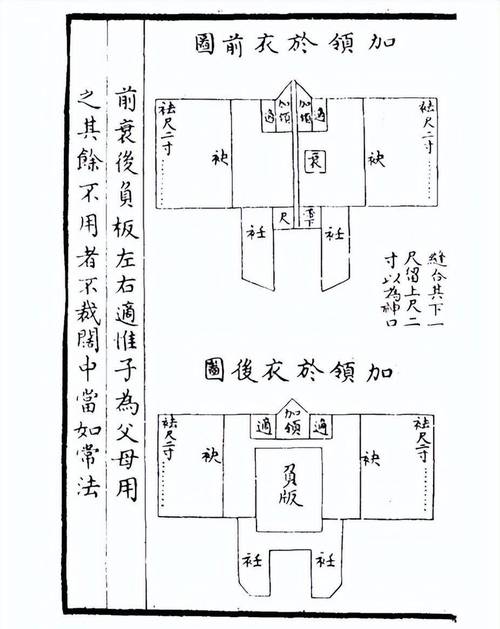 加領於衣前圖
袪尺二寸
袂
適
加領
加領
適
袂
袪尺二寸
衰
帶下
尺
衽
衽
縫合其下一
尺留上尺二
寸以為袖口
加領於衣後圖
袪尺二寸
袂
適
加領
適
袂
袪尺二寸
負版
衽
衽
前衰後負板左右適惟子為父母用
之其餘不用者不裁闊中當如常法